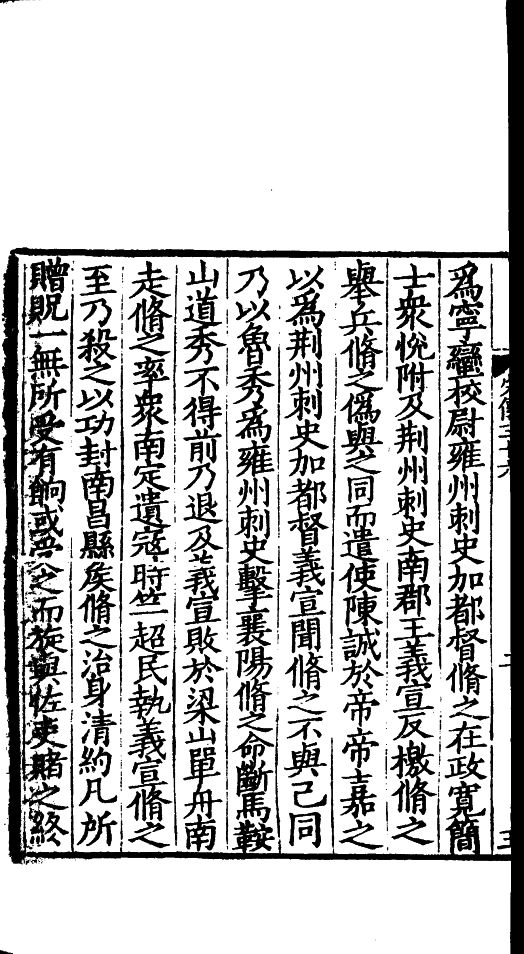 爲寧蠻校尉雍州刺史加都督脩之在政寬簡
士衆悅附及荆州刺史南郡王義宣反檄脩之
舉兵脩之僞與之同而遣使陳誠於帝帝嘉之
以爲荆州刺史加都督義宣聞脩之不與己同
乃以魯秀爲雍州刺史擊襄陽脩之命斷馬鞍
山道秀不得前乃退及義宣敗於梁山單舟南
走脩之率衆南定遺寇時竺超民執義宣脩之
至乃殺之以功封南昌縣矦脩之治身清約凡所
贈貺一無所受有餉或受之而旋與佐吏賭之終